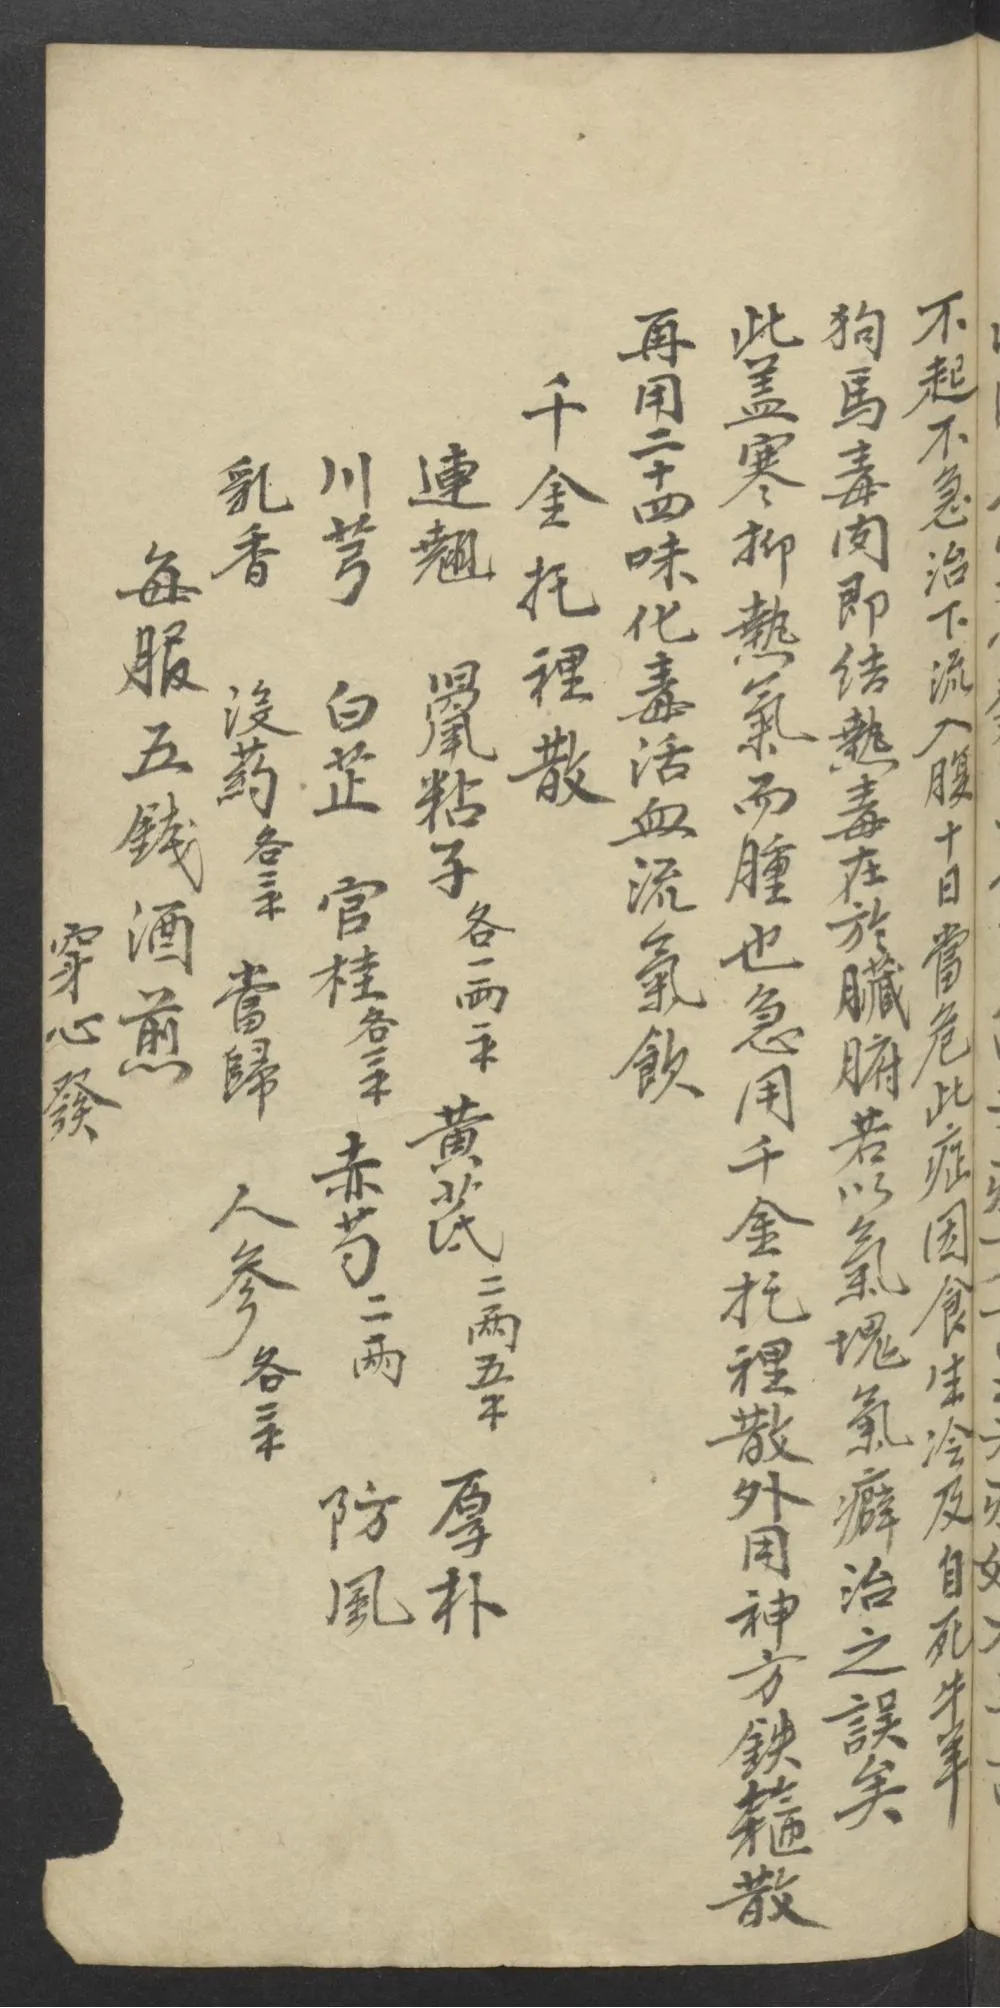 不起不急治下流入腹十日當危此症因食生冷及自死牛羊
狗馬毒肉即結熱毒在於臟腑若以氣塊氣癖治之誤矣
此盖寒抑熱氣而腫也急用千金托裡散外用神方鉄箍散
再用二十四味化毒活血流氣飲
千金托裡散
連翹 粘子各一兩二 黄芪二兩五 厚朴
川芎 白芷 官桂各 赤芍二兩 防風
乳香 沒药各 當歸 人參各
每服五錢酒煎
穿心發